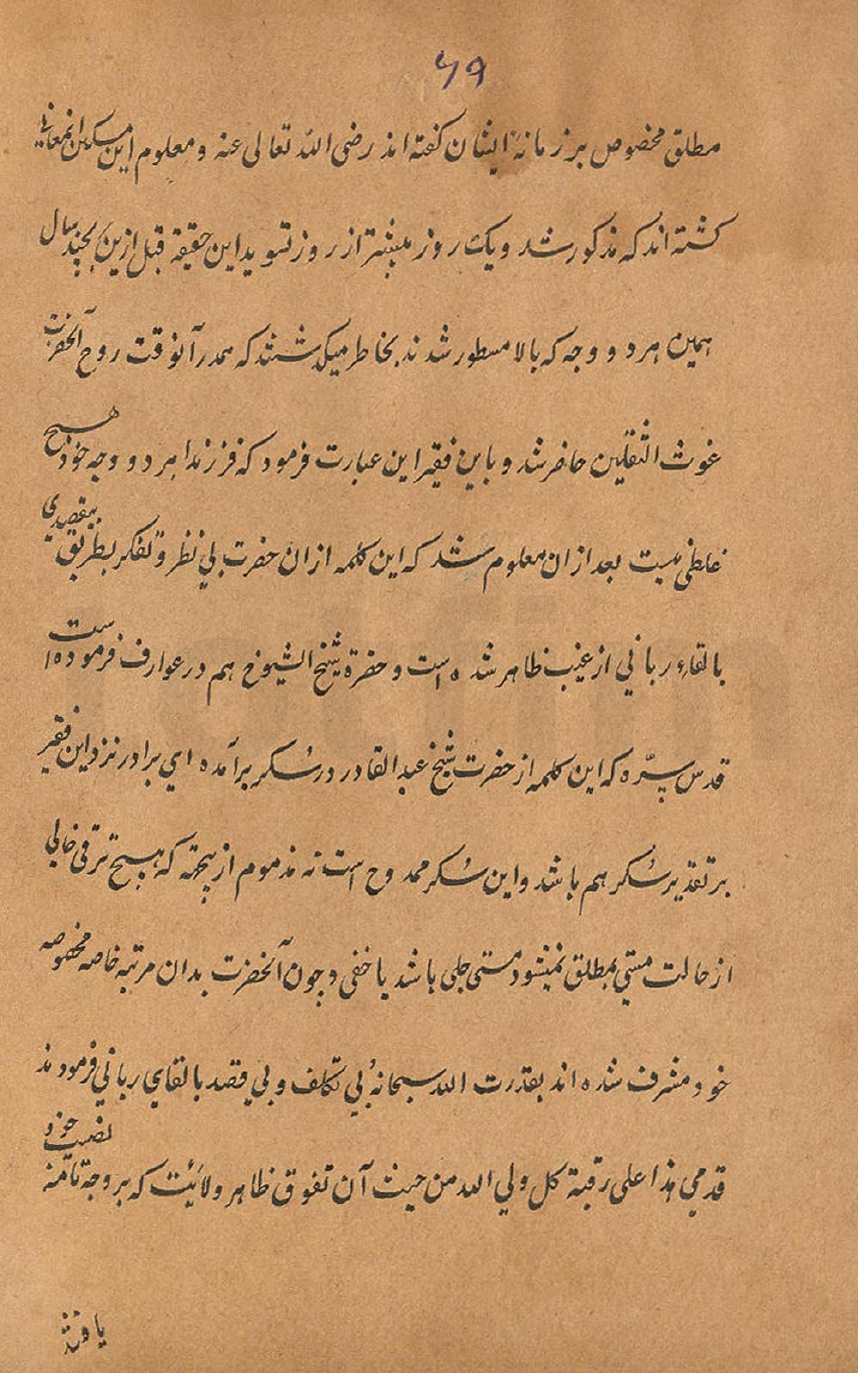 ۶۹
مطلق مخصوص بر زمانهٔ ایشان کفته اند رضی الله تعالی عنه و معلوم این مسکین
کشته اند که مذکور شد و یک روز پیشتر از روز تسوید این حقیقة قبل ازین بچند سال
همین هر دو وجه که بالا مسطور شدند بخاطر میکذشتند که همدر آنوقت روح آنحضرت
غوث الثقلین حاضر شد و باین فقیر این عبارت فرمود که فرزندا هر دو وجه خود هیچ
غلطی نیست بعد ازان معلوم شد که این کلمه ازان حضرت بی نظر و تفکر بطریق بیقصدی
بالقاء ربانی از غیب ظاهر شده است و حضرة شیخ الشیوخ هم در عوارف فرموده است
قدس سره که این کلمه از حضرت شیخ عبد القادر در سُکر برآمده ای برادر نزد این فقیر
بر تقدیر سُکر هم باشد و این سُکر ممدوح است نه مذموم از بهٔچه که هیچ ترقی خالی
از حالت مستی مطلق نمیشود مستی جلی باشد یا خفی و چون آنحضرت بدان مرتبه خاصه مخصوصه
خود مشرف شده اند بقدرت الله سبحانهٗ بی تکلف و بی قصد بالقای ربانی فرمودند
قدمی هذا علی رقبة کل ولی الله من حیث آن تفوق ظاهر ولایت که بر وجه تامه نصیب خود
یافته